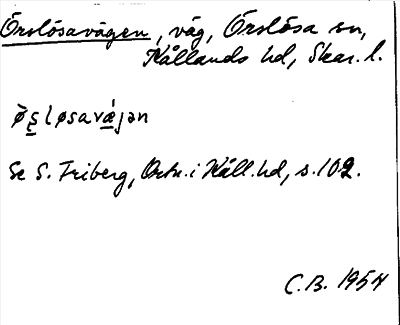 Örslösavägen, väg, Örslösa sn,
Kållands hd, Skar. l.
ø̀ʂløsavǽjən
Se S. Friberg, Ortn. i Kåll. hd, s. 102.
C.B. 1954